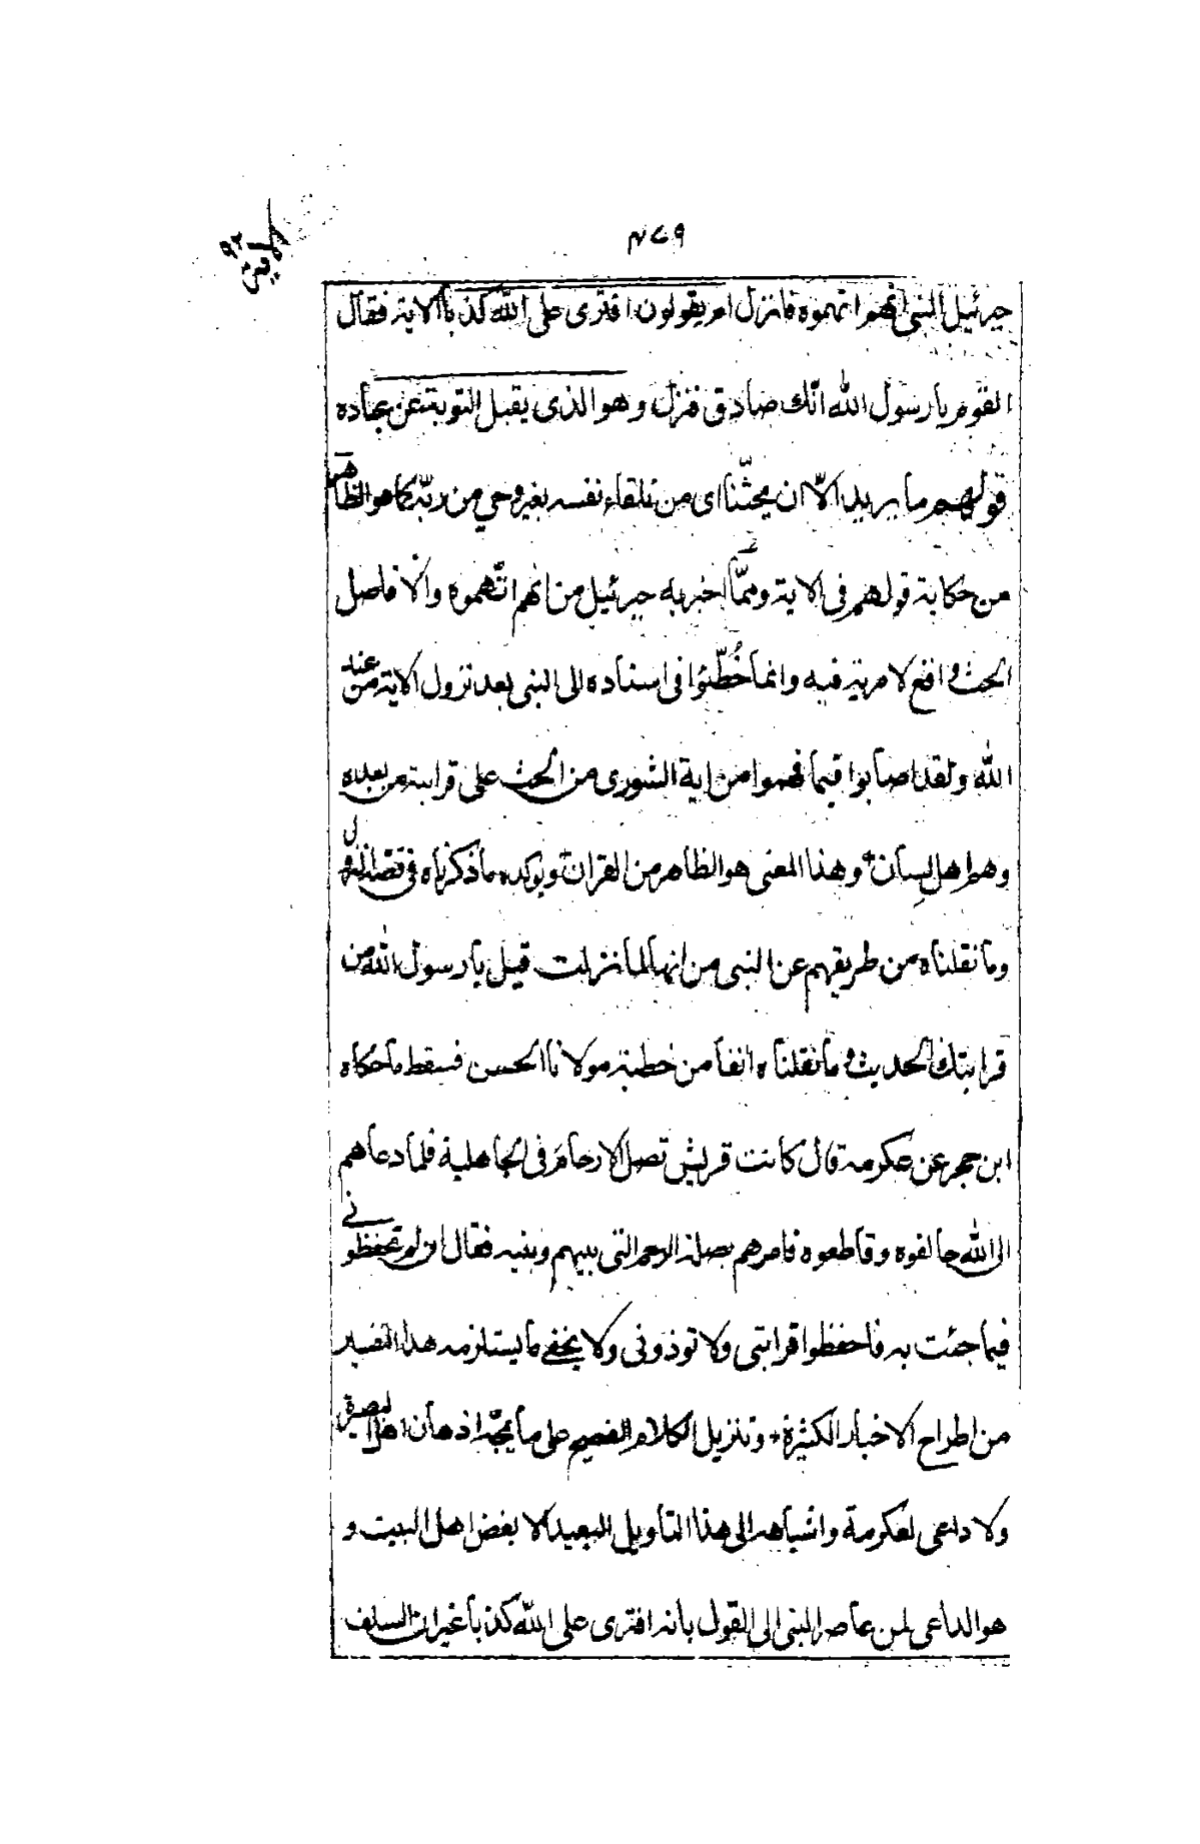 ٤٦٩
جبرئيل النبي انهم اتهموه فانزل ام يقولون افترى على الله كذبا الاية فقال
القوم يا رسول الله انك صادق فنزل وهو الذى يقبل التوبة عن عباده
قولهم ما يريد الّا ان يحثّنا اى من تلقاء نفسه بغير وحي من ربّه كما هو الظاهر
من حكاية قولهم فى الاية وممّا اخبر به جبرئيل من انهم اتّهموه والا فاصل
الحث واقع لا مرية فيه وانما خُطّئوا فى اسناده الى النبى بعد نزول الاية من عند
الله ولقد اصابوا فيما فهموا من اية الشورى من الحث على قرابته من بعده
وهم اهل لسان وهذا المعنى هو الظاهر من القران ويوكده ما ذكرناه فى
وما نقلناه من طريقهم عن النبى من انها لما نزلت قيل يا رسول الله من
قرابتك الحديث وما نقلناه انفا من خطبة مولانا الحسن فسقط ما حكاه
ابن حجر عن عكرمه قال كانت قريش تصل الارحام فى الجاهلية فلما دعاهم
الى الله خالفوه وقاطعوه فامرهم بصلة الرحم التى بينهم وبينه فقال ان لم تحفظونے
فيما جئت به فاحفظوا قرابتى ولا توذونى ولا يخفے ما يستلزمه هذا التفسير
من اطراح الاخبار الكثيرة وتنزيل الكلام الفصيح على ما يمجّه اذهان اهل البصيرة
ولا داعى لعكرمة واشباهه الى هذا التاويل البعيد الا بغض اهل البيت و
هو الداعى لمن عاصر النبى الى القول بانه افترى على الله كذبا غير ان السلف